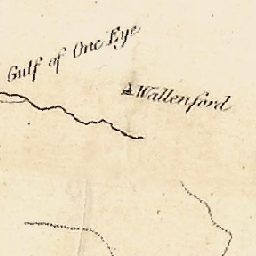 Gulf of One Eye
Wallenford